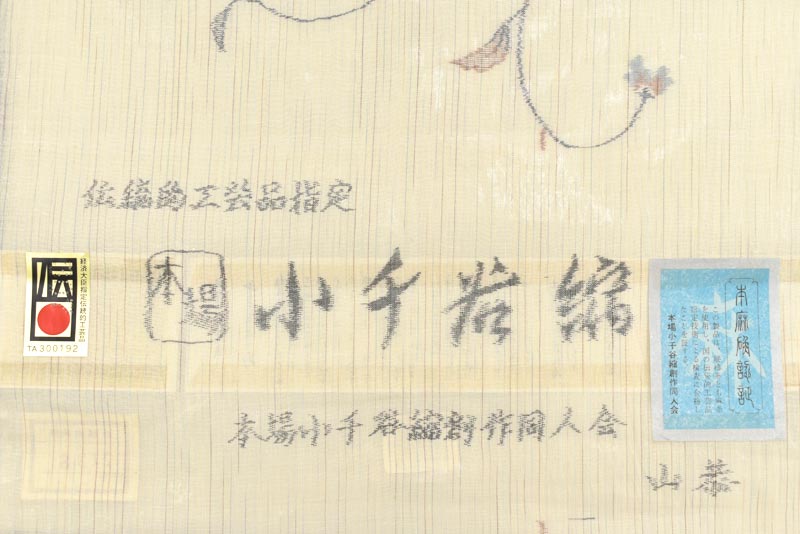 伝統的工芸品指定
本場
小千谷縮
本場小千谷縮創作同人会
山恭
伝
経済大臣指定伝統的工芸品
TA 300192
本麻検認証
本場小千谷縮創作同人会